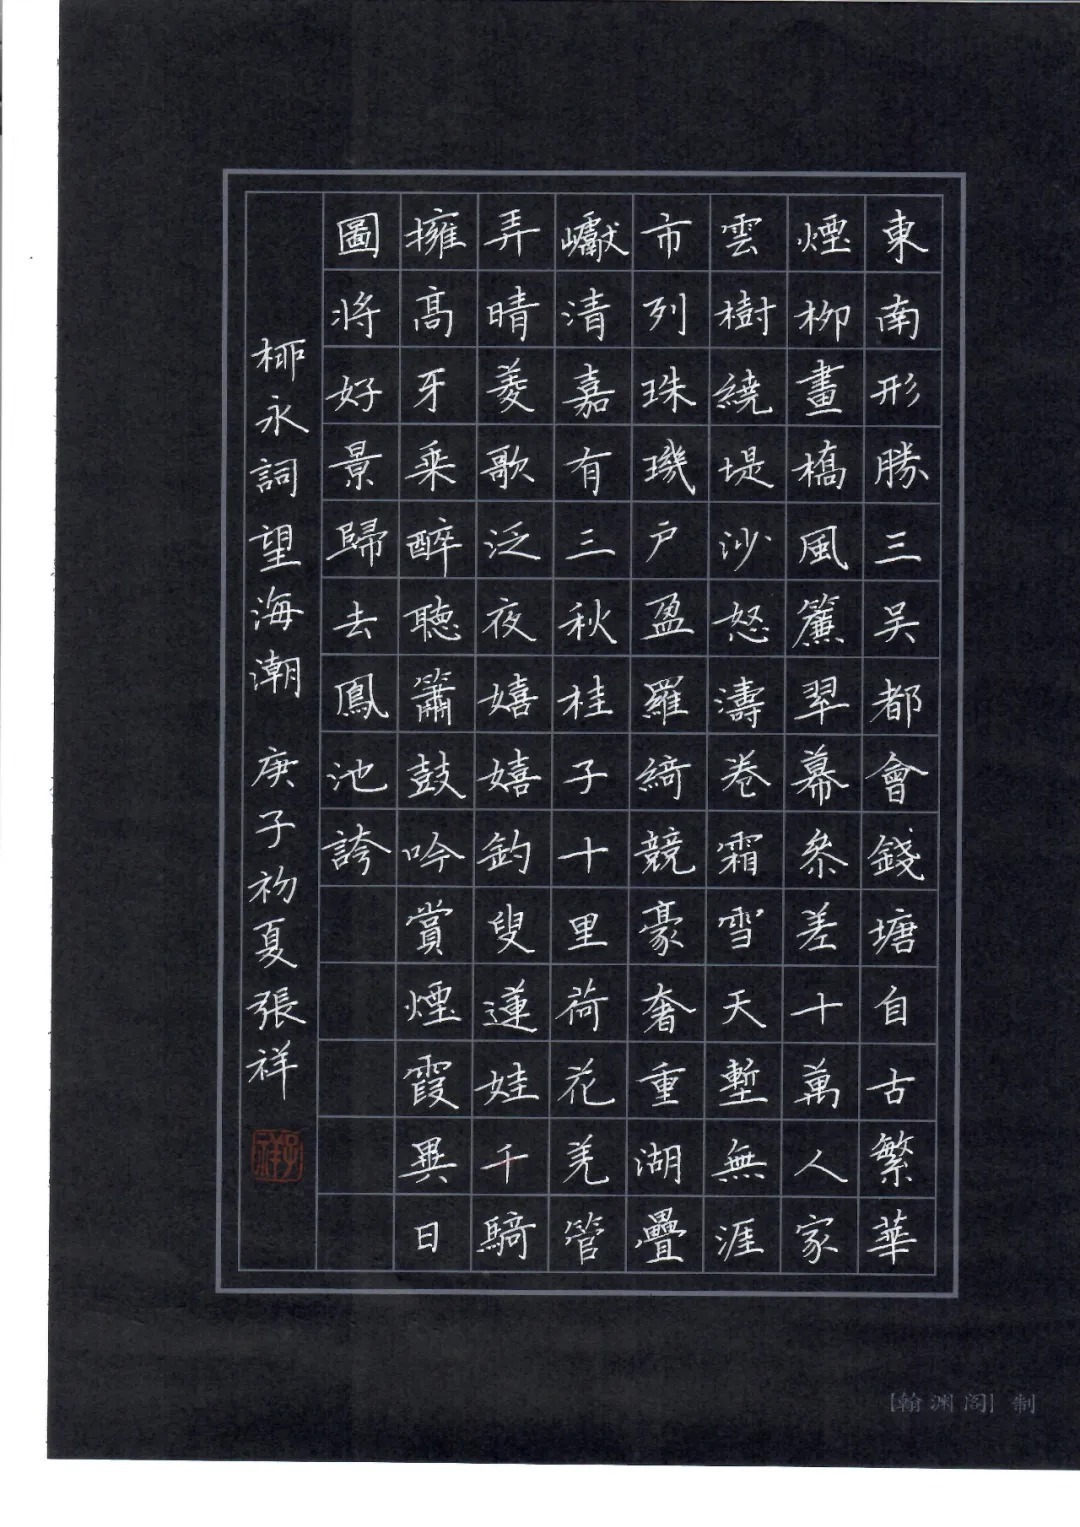 東南形勝三吴都會錢塘自古繁華
煙栁畫橋風簾翠幕叅差十萬人家
雲樹繞堤沙怒濤卷霜雪天塹無涯
市列珠璣户盈羅綺競豪奢重湖疊
巘清嘉有三秋桂子十里荷花羌管
弄晴菱歌泛夜嬉嬉釣叟蓮娃千騎
擁高牙乘醉聽簫鼓吟賞煙霞異日
圖將好景歸去鳳池誇
栁永詞望海潮 庚子初夏張祥
[翰渊阁]制